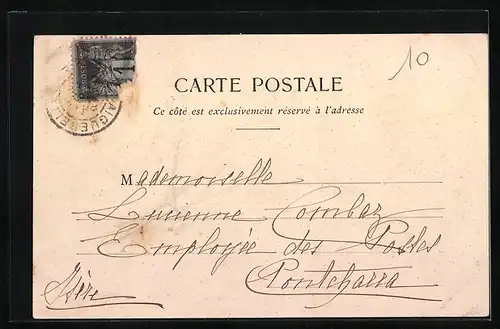 10
CARTE POSTALE
Ce côté est exclusivement réservé à l'adresse
Mademoiselle
Lucienne Combaz
Employée des Postes
Pontcharra
Isère